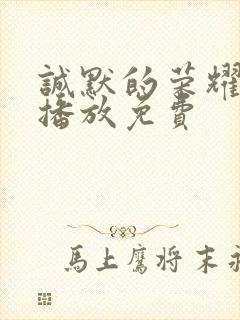 誠默的荣耀
播放免費
馬上鷹将末